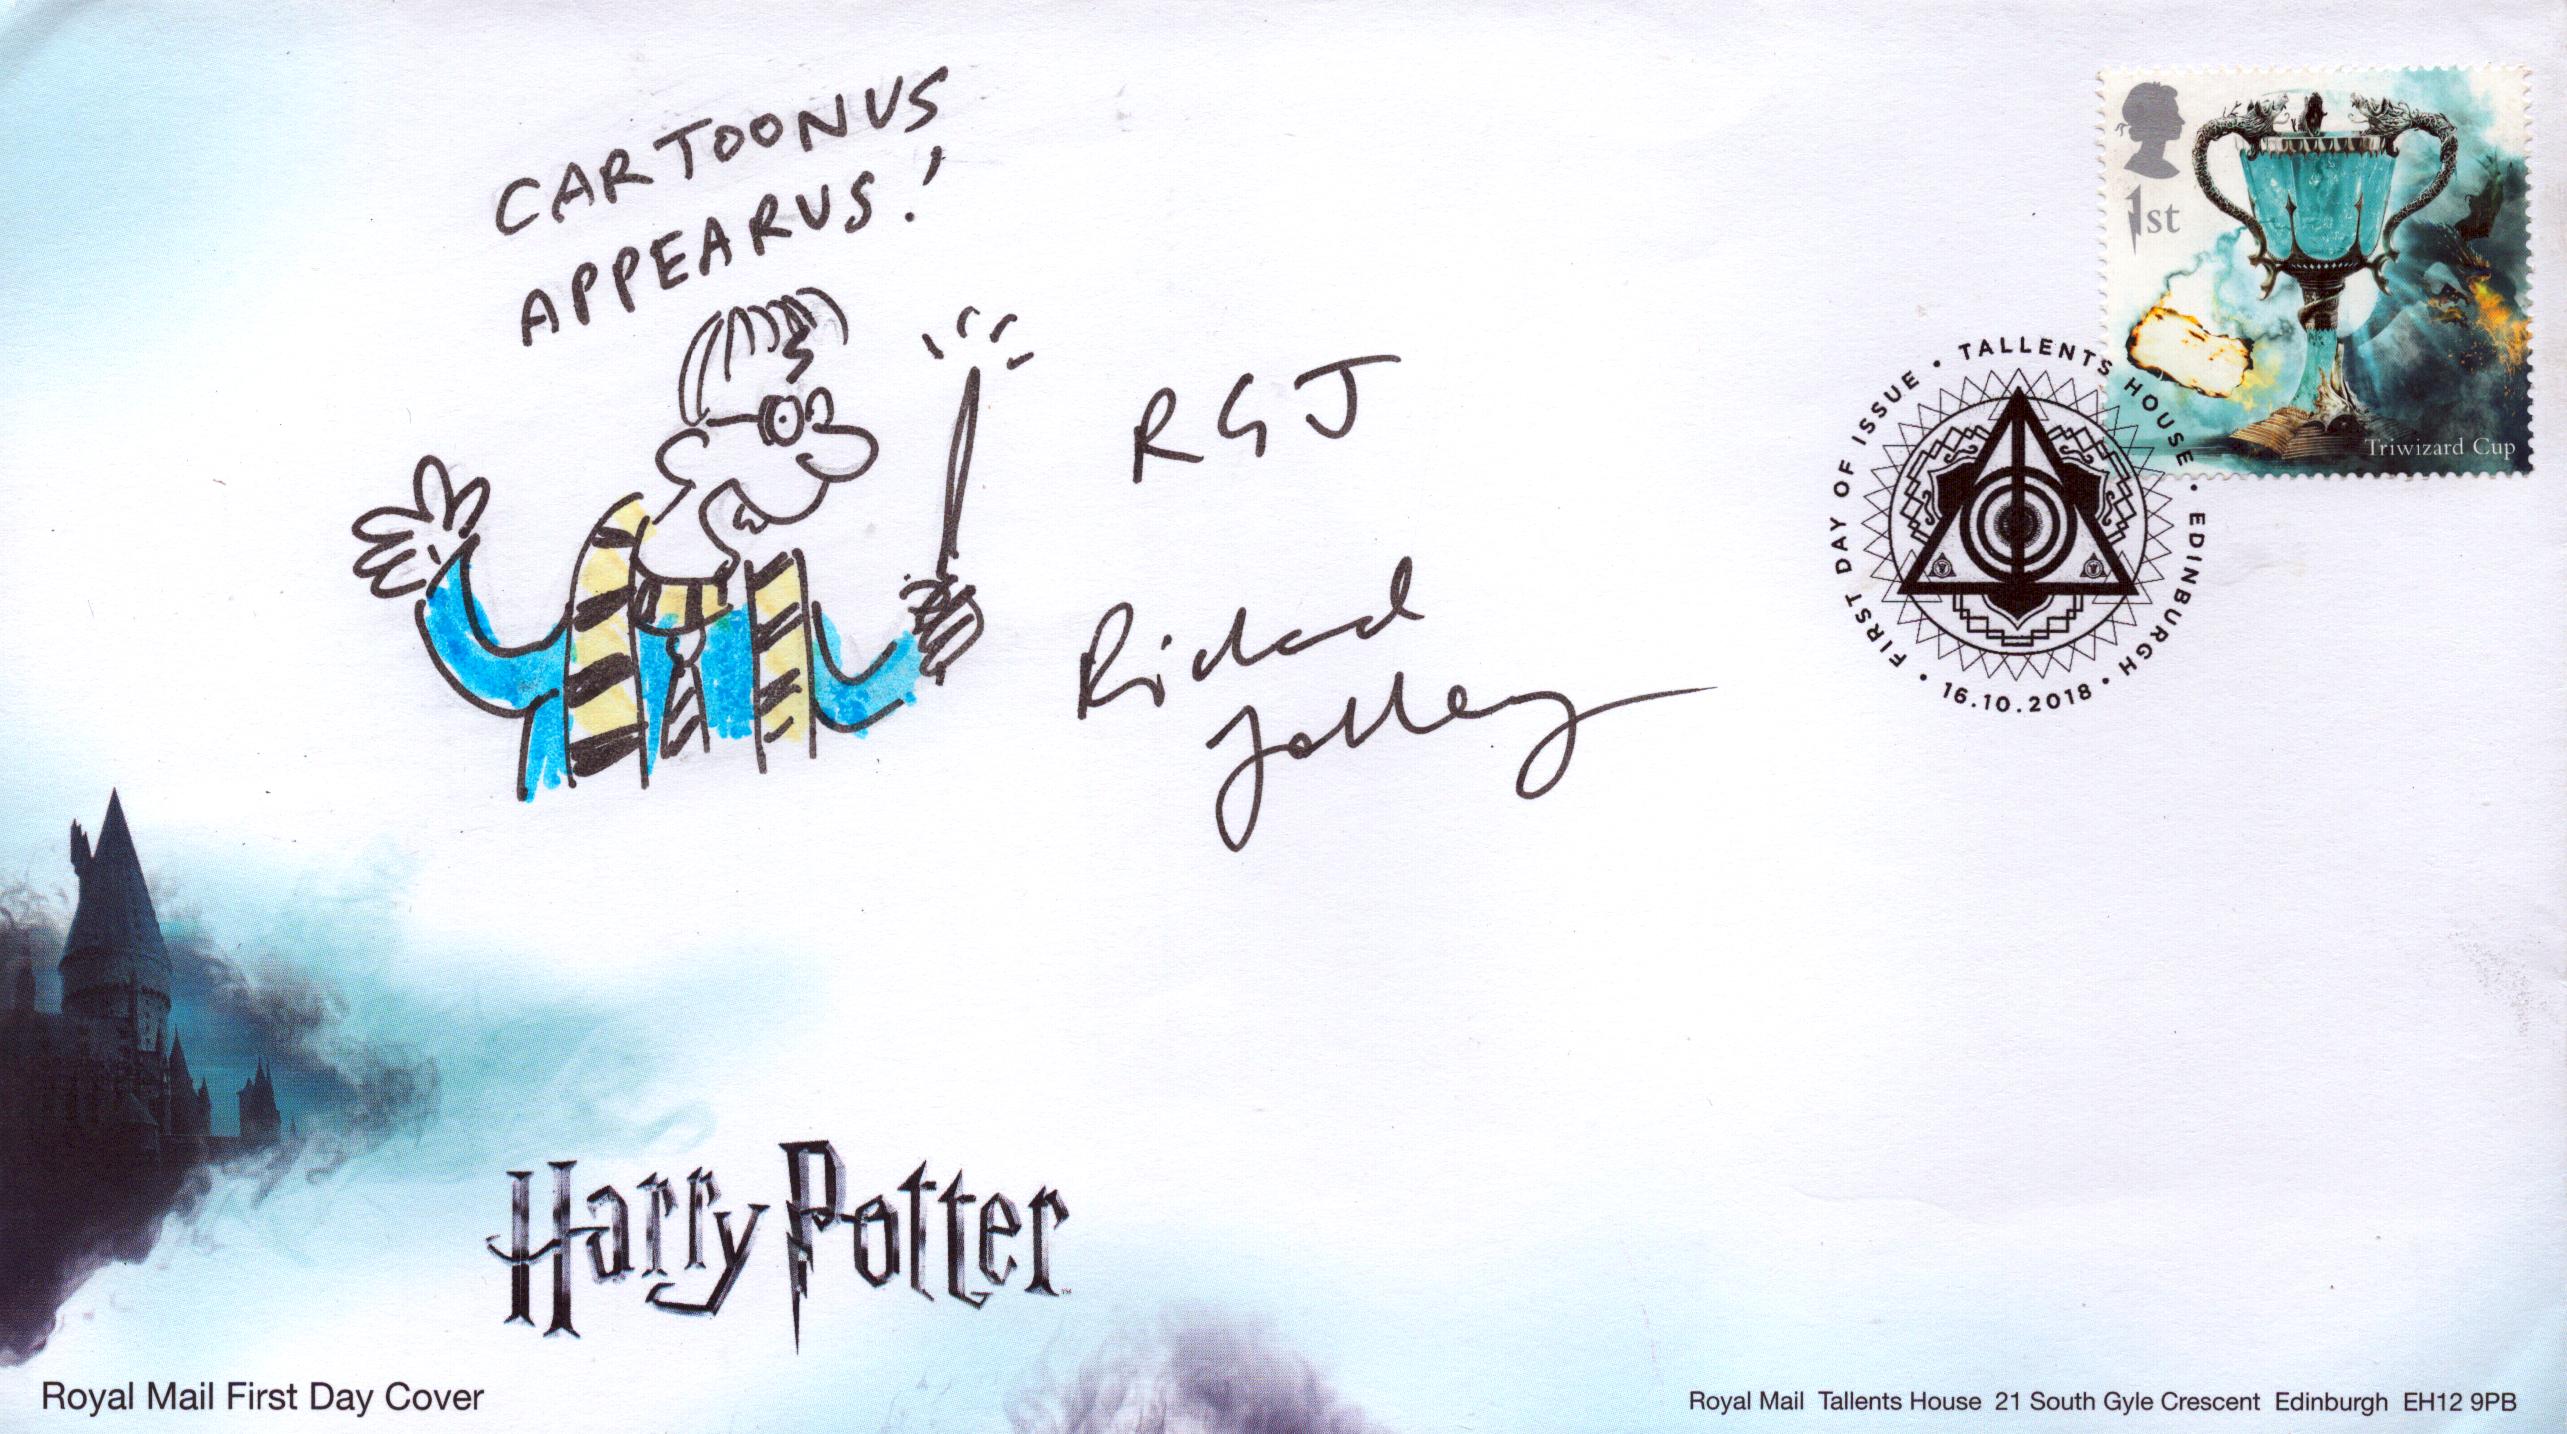 CARTOONUS
APPEARUS!
RGJ
Richard
Jolley
1st
Triwizard Cup
FIRST DAY OF ISSUE • TALLENTS HOUSE • EDINBURGH • 16.10.2018 •
Harry Potter
TM
Royal Mail First Day Cover
Royal Mail Tallents House 21 South Gyle Crescent Edinburgh EH12 9PB